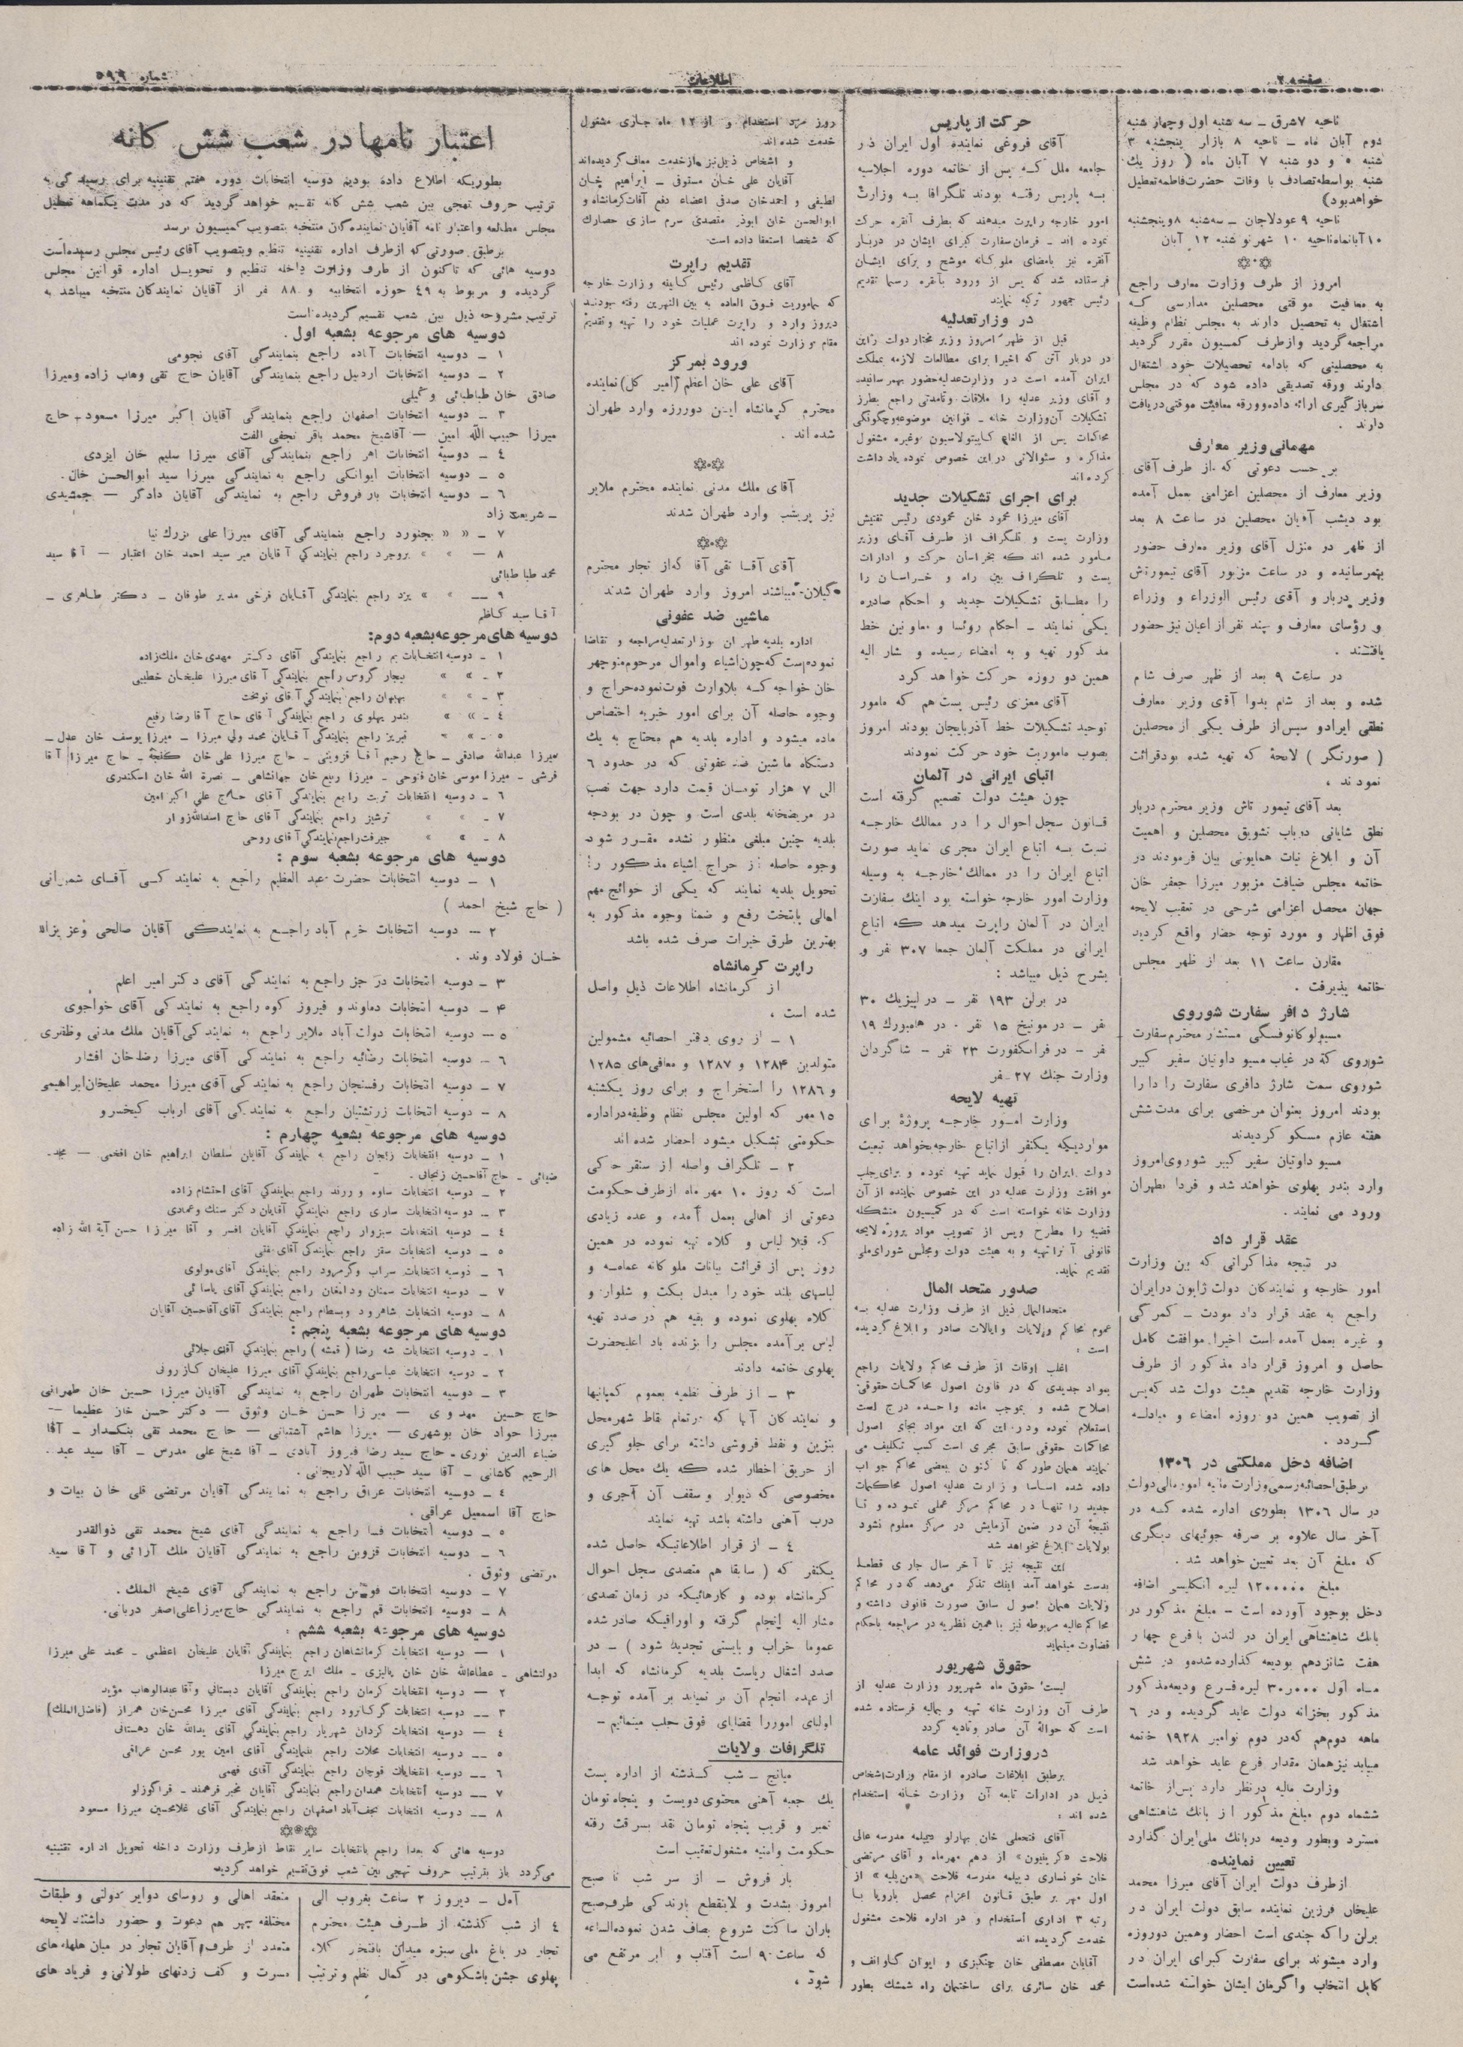 صفحه ۲
اطلاعات
شماره ۵۹۹
ناحیه ۷ شرق ــ سه شنبه اول و چهار شنبه
دوم آبان ماه ــ ناحیه ۸ بازار پنجشنبه ۳
شنبه ۵ و دو شنبه ۷ آبان ماه ( روز یك
شنبه بواسطه تصادف با وفات حضرت فاطمه تعطیل
خواهد بود)
ناحیه ۹ عودلاجان ــ سه شنبه ۸ و پنجشنبه
۱۰ آبانماه ناحیه ۱۰ شهر نو شنبه ۱۲ آبان
امروز از طرف وزارت معارف راجع
به معافیت موقتی محصلین مدارسی که
اشتغال به تحصیل دارند به مجلس نظام وظیفه
مراجعه گردید و از طرف کمسیون مقرر گردید
به محصلینی که بادامه تحصیلات خود اشتغال
دارند ورقه تصدیقی داده شود که در مجلس
سربازگیری ارائه داده و ورقه معافیت موقتی دریافت
دارند .
مهمانی وزیر معارف
بر حسب دعوتی که از طرف آقای
وزیر معارف از محصلین اعزامی بعمل آمده
بود دیشب آقایان محصلین در ساعت ۸ بعد
از ظهر در منزل آقای وزیر معارف حضور
بهمرسانیده و در ساعت مزبور آقای تیمورتاش
وزیر دربار و آقای رئیس الوزراء و وزراء
و رؤسای معارف و چند نفر از اعیان نیز حضور
یافتند .
در ساعت ۹ بعد از ظهر صرف شام
شده و بعد از شام بدوا آقای وزیر معارف
نطقی ایراد و سپس از طرف یکی از محصلین
( صورتگر ) لایحهٔ که تهیه شده بود قرائت
نمودند .
بعد آقای تیمور تاش وزیر محترم دربار
نطق شایانی در باب تشویق محصلین و اهمیت
آن و ابلاغ نیات همایونی بیان فرمودند در
خاتمه مجلس ضیافت مزبور میرزا جعفر خان
جهان محصل اعزامی شرحی در تعقیب لایحه
فوق اظهار و مورد توجه حضار واقع گردید
مقارن ساعت ۱۱ بعد از ظهر مجلس
خاتمه پذیرفت .
شارژ دافر سفارت شوروی
مسیو لوکانوفسکی مستشار محترم سفارت
شوروی که در غیاب مسیو داوتیان سفیر کبیر
شوروی سمت شارژ دافری سفارت را دارا
بودند امروز بعنوان مرخصی برای مدت شش
هفته عازم مسکو گردیدند
مسیو داوتیان سفیر کبیر شوروی امروز
وارد بندر پهلوی خواهند شد و فردا بطهران
ورود می نمایند .
عقد قرار داد
در نتیجه مذاکراتی که بین وزارت
امور خارجه و نمایندکان دولت ژاپون در ایران
راجع به عقد قرار داد مودت ــ گمرکی
و غیره بعمل آمده است اخیرا موافقت کامل
حاصل و امروز قرار داد مذکور از طرف
وزارت خارجه تقدیم هیئت دولت شد که پس
از تصویب همین دو روزه امضاء و مبادله
گردد .
اضافه دخل مملکتی در ۱۳۰۶
بر طبق احصائیه رسمی وزارت مالیه امور مالی دولت
در سال ۱۳۰۶ بطوری اداره شده که در
آخر سال علاوه بر صرفه جوئیهای دیگری
که مبلغ آن بعد تعیین خواهد شد .
مبلغ ۱۲۰۰۰۰۰ لیره انگلیسی اضافه
دخل بوجود آورده است – مبلغ مذکور در
بانك شاهنشاهی ایران در لندن با فرع چهار
هفت شانزدهم بودیعه گذارده شده و در شش
ماه اول ۳۰۰۰۰ لیره فرع ودیعه مذکور
مذکور بخزانه دولت عاید گردیده و در ۶
ماهه دوم هم که در دوم نوامبر ۱۹۲۸ خاتمه
میابد نیز همان مقدار فرع عاید خواهد شد
وزارت مالیه در نظر دارد پس از خاتمه
ششماه دوم مبلغ مذکور از بانك شاهنشاهی
مسترد و بطور ودیعه در بانك ملی ایران گذارد
تعیین نماینده
از طرف دولت ایران آقای میرزا محمد
علیخان فرزین نماینده سابق دولت ایران در
برلن را که چندی است احضار و همین دو روزه
وارد میشوند برای سفارت کبرای ایران در
کابل انتخاب و اگرمان ایشان خواسته شده است
حرکت از پاریس
آقای فروغی نماینده اول ایران در
جامعه ملل که پس از خاتمه دوره اجلاسیه
به پاریس رفته بودند تلگرافا به وزارت
امور خارجه راپرت میدهند که بطرف آنقره حرکت
نموده اند ــ فرمان سفارت کبرای ایشان در دربار
آنقره نیز بامضای ملوکانه موشح و برای ایشان
فرستاده شد که پس از ورود بآنقره رسما تقدیم
رئیس جمهور ترکیه نمایند
در وزارت عدلیه
قبل از ظهر امروز وزیر مختار دولت ژاپن
در دربار آتن که اخیرا برای مطالعات لازمه بمملکت
ایران آمده است در وزارت عدلیه حضور بهمرسانیده
و آقای وزیر عدلیه را ملاقات و تا مدتی راجع بطرز
تشکیلات آن وزارت خانه ــ قوانین موضوعه و چگونگی
محاکمات پس از الغای کاپیتولاسیون و غیره مشغول
مذاکره و سئوالاتی در این خصوص نموده یاد داشت
کرده اند
برای اجرای تشکیلات جدید
آقای میرزا محمود خان محمودی رئیس تفتیش
وزارت پست و تلگراف از طرف آقای وزیر
مامور شده اند که بخراسان حرکت و ادارات
پست و تلگراف بین راه و خراسان را
را مطابق تشکیلات جدید و احکام صادره
یکی نمایند ــ احکام روسا و معاونین خط
مذکور تهیه و به امضاء رسیده و مشار الیه
همین دو روزه حرکت خواهد کرد
آقای معزی رئیس پست هم که مامور
توحید تشکیلات خط آذربایجان بودند امروز
بصوب ماموریت خود حرکت نمودند
اتباع ایرانی در آلمان
چون هیئت دولت تصمیم گرفته است
قانون سجل احوال را در ممالك خارجه
نسبت به اتباع ایران مجری نماید صورت
اتباع ایران را در ممالك خارجه به وسیله
وزارت امور خارجه خواسته بود اینك سفارت
ایران در آلمان راپرت میدهد که اتباع
ایرانی در مملکت آلمان جمعا ۳۰۷ نفر و
بشرح ذیل میباشد :
در برلن ۱۹۳ نفر ــ در لیپزیك ۳۰
نفر ــ در مونیخ ۱۵ نفر . در هامبورك ۱۹
نفر ــ در فرانکفورت ۲۳ نفر ــ شاگردان
وزارت جنك ۲۷ نفر
تهیه لایحه
وزارت امور خارجه پروژهٔ برای
مواردیکه یکنفر از اتباع خارجه بخواهد تبعیت
دولت ایران را قبول نماید تهیه نموده و برای جلب
موافقت وزارت عدلیه در این خصوص نماینده از آن
وزارت خانه خواسته است که در کمیسیون متشکله
قضیه را مطرح و پس از تصویب مواد پروژه لایحه
قانونی آنرا تهیه و به هیئت دولت و مجلس شورای ملی
تقدیم نماید.
صدور متحد المال
متحدالمال ذیل از طرف وزارت عدلیه به
عموم محاکم ولایات و ایالات صادر و ابلاغ گردیده
است :
اغلب اوقات از طرف محاکم ولایات راجع
بمواد جدیدی که در قانون اصول محاکمات حقوقی
اصلاح شده و بموجب ماده واحده درج است
استعلام نموده و در این که این مواد بجای اصول
محاکمات حقوقی سابق مجری است کسب تکلیف می
نمایند همان طور که تا کنون ببعضی محاکم جواب
داده شده اساسا وزارت عدلیه اصول محاکمات
جدید را تنها در محاکم مرکز عملی نموده و تا
نتیجهٔ آن در ضمن آزمایش در مرکز معلوم نشود
بولایات ابلاغ نخواهد شد
این نتیجه نیز تا آخر سال جاری قطعا
بدست خواهد آمد اینك تذکر میدهد که در محاکم
ولایات همان اصول سابق صورت قانونی داشته و
محاکم عالیه مربوطه نیز با همین نظریه در مراجعه باحکام
قضاوت مینماید
حقوق شهریور
لیست حقوق ماه شهریور وزارت عدلیه از
طرف آن وزارت خانه تهیه و بمالیه فرستاده شده
است که حوالهٔ آن صادر و تادیه گردد
در وزارت فوائد عامه
بر طبق ابلاغات صادره از مقام وزارت اشخاص
ذیل در ادارات تابعه آن وزارت خانه استخدام
شده اند :
آقای فتحعلی خان بهارلو دیپلمه مدرسه عالی
فلاحت «گرینیون» از دهم مهرماه و آقای مرتضی
خان خونساری دیپلمه مدرسه فلاحت «من پلیه» از
اول مهر بر طبق قانون اعزام محصل باروپا با
رتبه ۳ اداری استخدام و در اداره فلاحت مشغول
خدمت گردیده اند
آقایان مصطفی خان چنگیزی و ایوان گاوانف و
محمد خان سائری برای ساختمان راه شمشك بطور
روز مزد استخدام و از ۱۲ ماه جاری مشغول
خدمت شده اند
و اشخاص ذیل نیز از خدمت معاف گردیده اند
آقایان علی خان مستوفی ــ ابراهیم خان
لطیفی و احمد خان صدقی اعضاء دفع آفات کرمانشاه و
ابوالحسن خان ابوذر متصدی سرم سازی حصارك
که شخصا استعفا داده است.
تقدیم راپرت
آقای کاظمی رئیس کابینه وزارت خارجه
که بماموریت فوق العاده به بین النهرین رفته بودند
دیروز وارد و راپرت عملیات خود را تهیه و تقدیم
مقام وزارت نموده اند
ورود بمرکز
آقای علی خان اعظم (امیر کل) نماینده
محترم کرمانشاه این دو روزه وارد طهران
شده اند .
آقای ملك مدنی نماینده محترم ملایر
نیز پریشب وارد طهران شدند
آقای آقا نقی آقا که از تجار محترم
گیلان میباشند امروز وارد طهران شدند
ماشین ضد عفونی
اداره بلدیه طهران بوزارت عدلیه مراجعه و تقاضا
نموده است که چون اشیاء و اموال مرحوم منوچهر
خان خواجه که بلاوارث فوت نموده حراج و
وجوه حاصله آن برای امور خیریه اختصاص
داده میشود و اداره بلدیه هم محتاج به یك
دستگاه ماشین ضد عفونی که در حدود ۶
الی ۷ هزار تومان قیمت دارد جهت نصب
در مریضخانه بلدی است و چون در بودجه
بلدیه چنین مبلغی منظور نشده مقرر شود
وجوه حاصله از حراج اشیاء مذکور را
تحویل بلدیه نمایند که یکی از حوائج مهم
اهالی پایتخت رفع و ضمنا وجوه مذکور به
بهترین طرق خیرات صرف شده باشد
راپرت کرمانشاه
از کرمانشاه اطلاعات ذیل واصل
شده است .
۱ – از روی دفتر احصائیه مشمولین
متولدین ۱۲۸۴ و ۱۲۸۷ و معافی های ۱۲۸۵
و ۱۲۸۶ را استخراج و برای روز یکشنبه
۱۵ مهر که اولین مجلس نظام وظیفه در اداره
حکومتی تشکیل میشود احضار شده اند
۲ – تلگراف واصله از سنقر حاکی
است که روز ۱۰ مهر ماه از طرف حکومت
دعوتی از اهالی بعمل آمده و عده زیادی
که قبلا لباس و کلاه تهیه نموده در همین
روز پس از قرائت بیانات ملوکانه عمامه و
لباسهای بلند خود را مبدل بکت و شلوار و
کلاه پهلوی نموده و بقیه هم در صدد تهیه
لباس بر آمده مجلس را بزنده باد اعلیحضرت
پهلوی خاتمه دادند
۳ – از طرف نظمیه بعموم کمپانیها
و نمایندکان آنها که در تمام نقاط شهر محل
بنزین و نفط فروشی داشته برای جلو گیری
از حریق اخطار شده که یك محل های
مخصوصی که دیوار و سقف آن آجری و
درب آهنی داشته باشد تهیه نمایند
۴ – از قرار اطلاعاتیکه حاصل شده
یکنفر که ( سابقا هم متصدی سجل احوال
کرمانشاه بوده و کارهائیکه در زمان تصدی
مشار الیه انجام گرفته و اوراقیکه صادر شده
عموما خراب و بایستی تجدید شود ) ــ در
صدد اشغال ریاست بلدیه کرمانشاه که ابدا
از عهده انجام آن بر نمیاید بر آمده توجه
اولیای امور را بقضایای فوق جلب مینمائیم –
تلگرافات ولایات
میانج ــ شب گذشته از اداره پست
یك جعبه آهنی محتوی دویست و پنجاه تومان
تمبر و قریب پنجاه تومان نقد بسرقت رفته
حکومت و امنیه مشغول تعقیب است
بار فروش ــ از سر شب تا صبح
امروز بشدت و لاینقطع بارندگی طرف صبح
باران ساکت شروع بصاف شدن نموده الساعه
که ساعت ۹ است آفتاب و ابر مرتفع می
شود .
اعتبار نامها در شعب شش کانه
بطوریکه اطلاع داده بودیم دوسیه انتخابات دوره هفتم تقنینیه برای رسیدگی به
ترتیب حروف تهجی بین شعب شش کانه تقسیم خواهد گردید که در مدت یکماهه تعطیل
مجلس مطالعه و اعتبار نامه آقایان نمایندکان منتخبه بتصویب کمیسیون برسد
بر طبق صورتی که از طرف اداره تقنینیه تنظیم و بتصویب آقای رئیس مجلس رسیده است
دوسیه هائی که تاکنون از طرف وزارت داخله تنظیم و تحویل اداره قوانین مجلس
گردیده و مربوط به ۴۹ حوزه انتخابیه و ۸۸ نفر از آقایان نمایندکان منتخبه میباشد به
ترتیب مشروحه ذیل بین شعب تقسیم گردیده است
دوسیه های مرجوعه بشعبه اول .
۱ ــ دوسیه انتخابات آباده راجع بنمایندگی آقای نجومی
۲ ــ دوسیه انتخابات اردبیل راجع بنمایندگی آقایان حاج تقی وهاب زاده و میرزا
صادق خان طباطبائی و کیلی
۳ ــ دوسیه انتخابات اصفهان راجع بنمایندگی آقایان اکبر میرزا مسعود ــ حاج
میرزا حبیب الله امین ــ آقا شیخ محمد باقر نجفی الفت
۴ ــ دوسیه انتخابات اهر راجع بنمایندگی آقای میرزا سلیم خان ایزدی
۵ ــ دوسیه انتخابات ایوانکی راجع به نمایندگی میرزا سید ابوالحسن خان.
۶ ــ دوسیه انتخابات بار فروش راجع به نمایندگی آقایان دادگر ــ جمشیدی
ــ شریعت زاد
۷ ــ » » بجنورد راجع بنمایندگی آقای میرزا علی بزرك نیا
۸ ــ » » بروجرد راجع بنمایندگی آقایان میر سید احمد خان اعتبار ــ آقا سید
محمد طباطبائی
۹ ــ » » یزد راجع بنمایندگی آقایان فرخی مدیر طوفان ــ دکتر طاهری ــ
آقا سید کاظم
دوسیه های مرجوعه بشعبه دوم:
۱ ــ دوسیه انتخابات بم راجع بنمایندگی آقای دکتر مهدی خان ملك زاده
۲ ــ » » بیجار گروس راجع بنمایندگی آقای میرزا علیخان خطیبی
۳ ــ » » بهبهان راجع بنمایندگی آقای نوبخت
۴ ــ » » بندر پهلوی راجع بنمایندگی آقای حاج آقا رضا رفیع
۵ ــ » » تبریز راجع بنمایندگی آقایان محمد ولی میرزا ــ میرزا یوسف خان عدل ــ
میرزا عبدالله صادقی ــ حاج رحیم آقا قزوینی ــ حاج میرزا علی خان گنجهٔ ــ حاج میرزا آقا
فرشی ــ میرزا موسی خان فتوحی ــ میرزا ربیع خان جهانشاهی ــ نصرة الله خان اسکندری
۶ ــ دوسیه انتخابات تربت راجع بنمایندگی آقای حاج علی اکبر امین
۷ ــ » » ترشیز راجع بنمایندگی آقای حاج اسدالله زوار
۸ ــ » » جیرفت راجع بنمایندگی آقای روحی
دوسیه های مرجوعه بشعبه سوم :
۱ ــ دوسیه انتخابات حضرت عبد العظیم راجع به نمایندگی آقای شمیرانی
( حاج شیخ احمد )
۲ ــ دوسیه انتخابات خرم آباد راجع به نمایندگی آقایان صالحی و عزیز الله
خان فولادوند .
۳ ــ دوسیه انتخابات درجز راجع به نمایندگی آقای دکتر امیر اعلم
۴ ــ دوسیه انتخابات دماوند و فیروز کوه راجع به نمایندگی آقای خواجوی
۵ ــ دوسیه انتخابات دولت آباد ملایر راجع به نمایندگی آقایان ملك مدنی و ظفری
۶ ــ دوسیه انتخابات رضائیه راجع به نمایندگی آقای میرزا رضا خان افشار
۷ ــ دوسیه انتخابات رفسنجان راجع به نمایندگی آقای میرزا محمد علیخان ابراهیمی
۸ ــ دوسیه انتخابات زرتشتیان راجع به نمایندگی آقای ارباب کیخسرو
دوسیه های مرجوعه بشعبه چهارم :
۱ ــ دوسیه انتخابات زنجان راجع به نمایندگی آقایان سلطان ابراهیم خان افخمی ــ مجد
ضیائی ــ حاج آقا حسین زنجانی .
۲ ــ دوسیه انتخابات ساوه و زرند راجع بنمایندگی آقای احتشام زاده
۳ ــ دوسیه انتخابات ساری راجع بنمایندگی آقایان دکتر سنك و عمادی
۴ ــ دوسیه انتخابات سبزوار راجع بنمایندگی آقایان افسر و آقا میرزا حسن آیة الله زاده
۵ ــ دوسیه انتخابات سقز راجع بنمایندگی آقای مفتی
۶ ــ دوسیه انتخابات سراب و گرمرود راجع بنمایندگی آقای مولوی
۷ ــ دوسیه انتخابات سمنان و دامغان راجع بنمایندگی آقای یاسائی
۸ ــ دوسیه انتخابات شاهرود و بسطام راجع بنمایندگی آقای آقا حسین آقایان
دوسیه های مرجوعه بشعبه پنجم :
۱ ــ دوسیه انتخابات شه رضا (قمشه) راجع بنمایندگی آقای جلائی
۲ ــ دوسیه انتخابات عباسی راجع بنمایندگی آقای میرزا علیخان کازرونی
۳ ــ دوسیه انتخابات طهران راجع به نمایندگی آقایان میرزا حسین خان طهرانی
حاج حسین مهدوی ــ میرزا حسن خان وثوق ــ دکتر حسن خان عظیما ــ
میرزا جواد خان بوشهری ــ میرزا هاشم آشتیانی ــ حاج محمد تقی بنکدار ــ آقا
ضیاء الدین نوری ــ حاج سید رضا فیروز آبادی ــ آقا شیخ علی مدرس ــ آقا سید عبد
الرحیم کاشانی ــ آقا سید حبیب الله لاریجانی .
۴ ــ دوسیه انتخابات عراق راجع به نمایندگی آقایان مرتضی قلی خان بیات و
حاج آقا اسمعیل عراقی .
۵ ــ دوسیه انتخابات فسا راجع به نمایندگی آقای شیخ محمد تقی ذوالقدر
۶ ــ دوسیه انتخابات قزوین راجع به نمایندگی آقایان ملك آرائی و آقا سید
مرتضی وثوق .
۷ ــ دوسیه انتخابات فومن راجع به نمایندگی آقای شیخ الملك .
۸ ــ دوسیه انتخابات قم راجع به نمایندگی حاج میرزا علی اصغر دربانی.
دوسیه های مرجوعه بشعبه ششم :
۱ ــ دوسیه انتخابات کرمانشاهان راجع بنمایندگی آقایان علیخان اعظمی ــ محمد علی میرزا
دولتشاهی ــ عطاءالله خان پالیزی ــ ملك ایرج میرزا
۲ ــ دوسیه انتخابات کرمان راجع بنمایندگی آقایان دبستانی و آقا عبدالوهاب مؤید
۳ ــ دوسیه انتخابات گرگانرود راجع بنمایندگی آقای میرزا محسن خان همراز (فاضل الملك)
۴ ــ دوسیه انتخابات کردان شهریار راجع بنمایندگی آقای یدالله خان دهستانی
۵ ــ دوسیه انتخابات محلات راجع بنمایندگی آقای امین پور محسن عراقی
۶ ــ دوسیه انتخابات قوچان راجع بنمایندگی آقای فهمی
۷ ــ دوسیه انتخابات همدان راجع بنمایندگی آقایان مخبر فرهمند ــ قراگوزلو
۸ ــ دوسیه انتخابات نجف آباد اصفهان راجع بنمایندگی آقای غلامحسین میرزا مسعود
دوسیه هائی که بعدا راجع بانتخابات سایر نقاط از طرف وزارت داخله تحویل اداره تقنینیه
می گردد باز بترتیب حروف تهجی بین شعب فوق تقسیم خواهد گردید
آمل ــ دیروز ۲ ساعت بغروب الی
۴ از شب گذشته از طرف هیئت محترم
تجار در باغ ملی سبزه میدان بافتخار کلاه
پهلوی جشن باشکوهی در کمال نظم و ترتیب
منعقد اهالی و روسای دوایر دولتی و طبقات
مختلفه شهر هم دعوت و حضور داشتند لایحه
متعدد از طرف آقایان تجار در میان هلهله های
مسرت و کف زدنهای طولانی و فریاد های